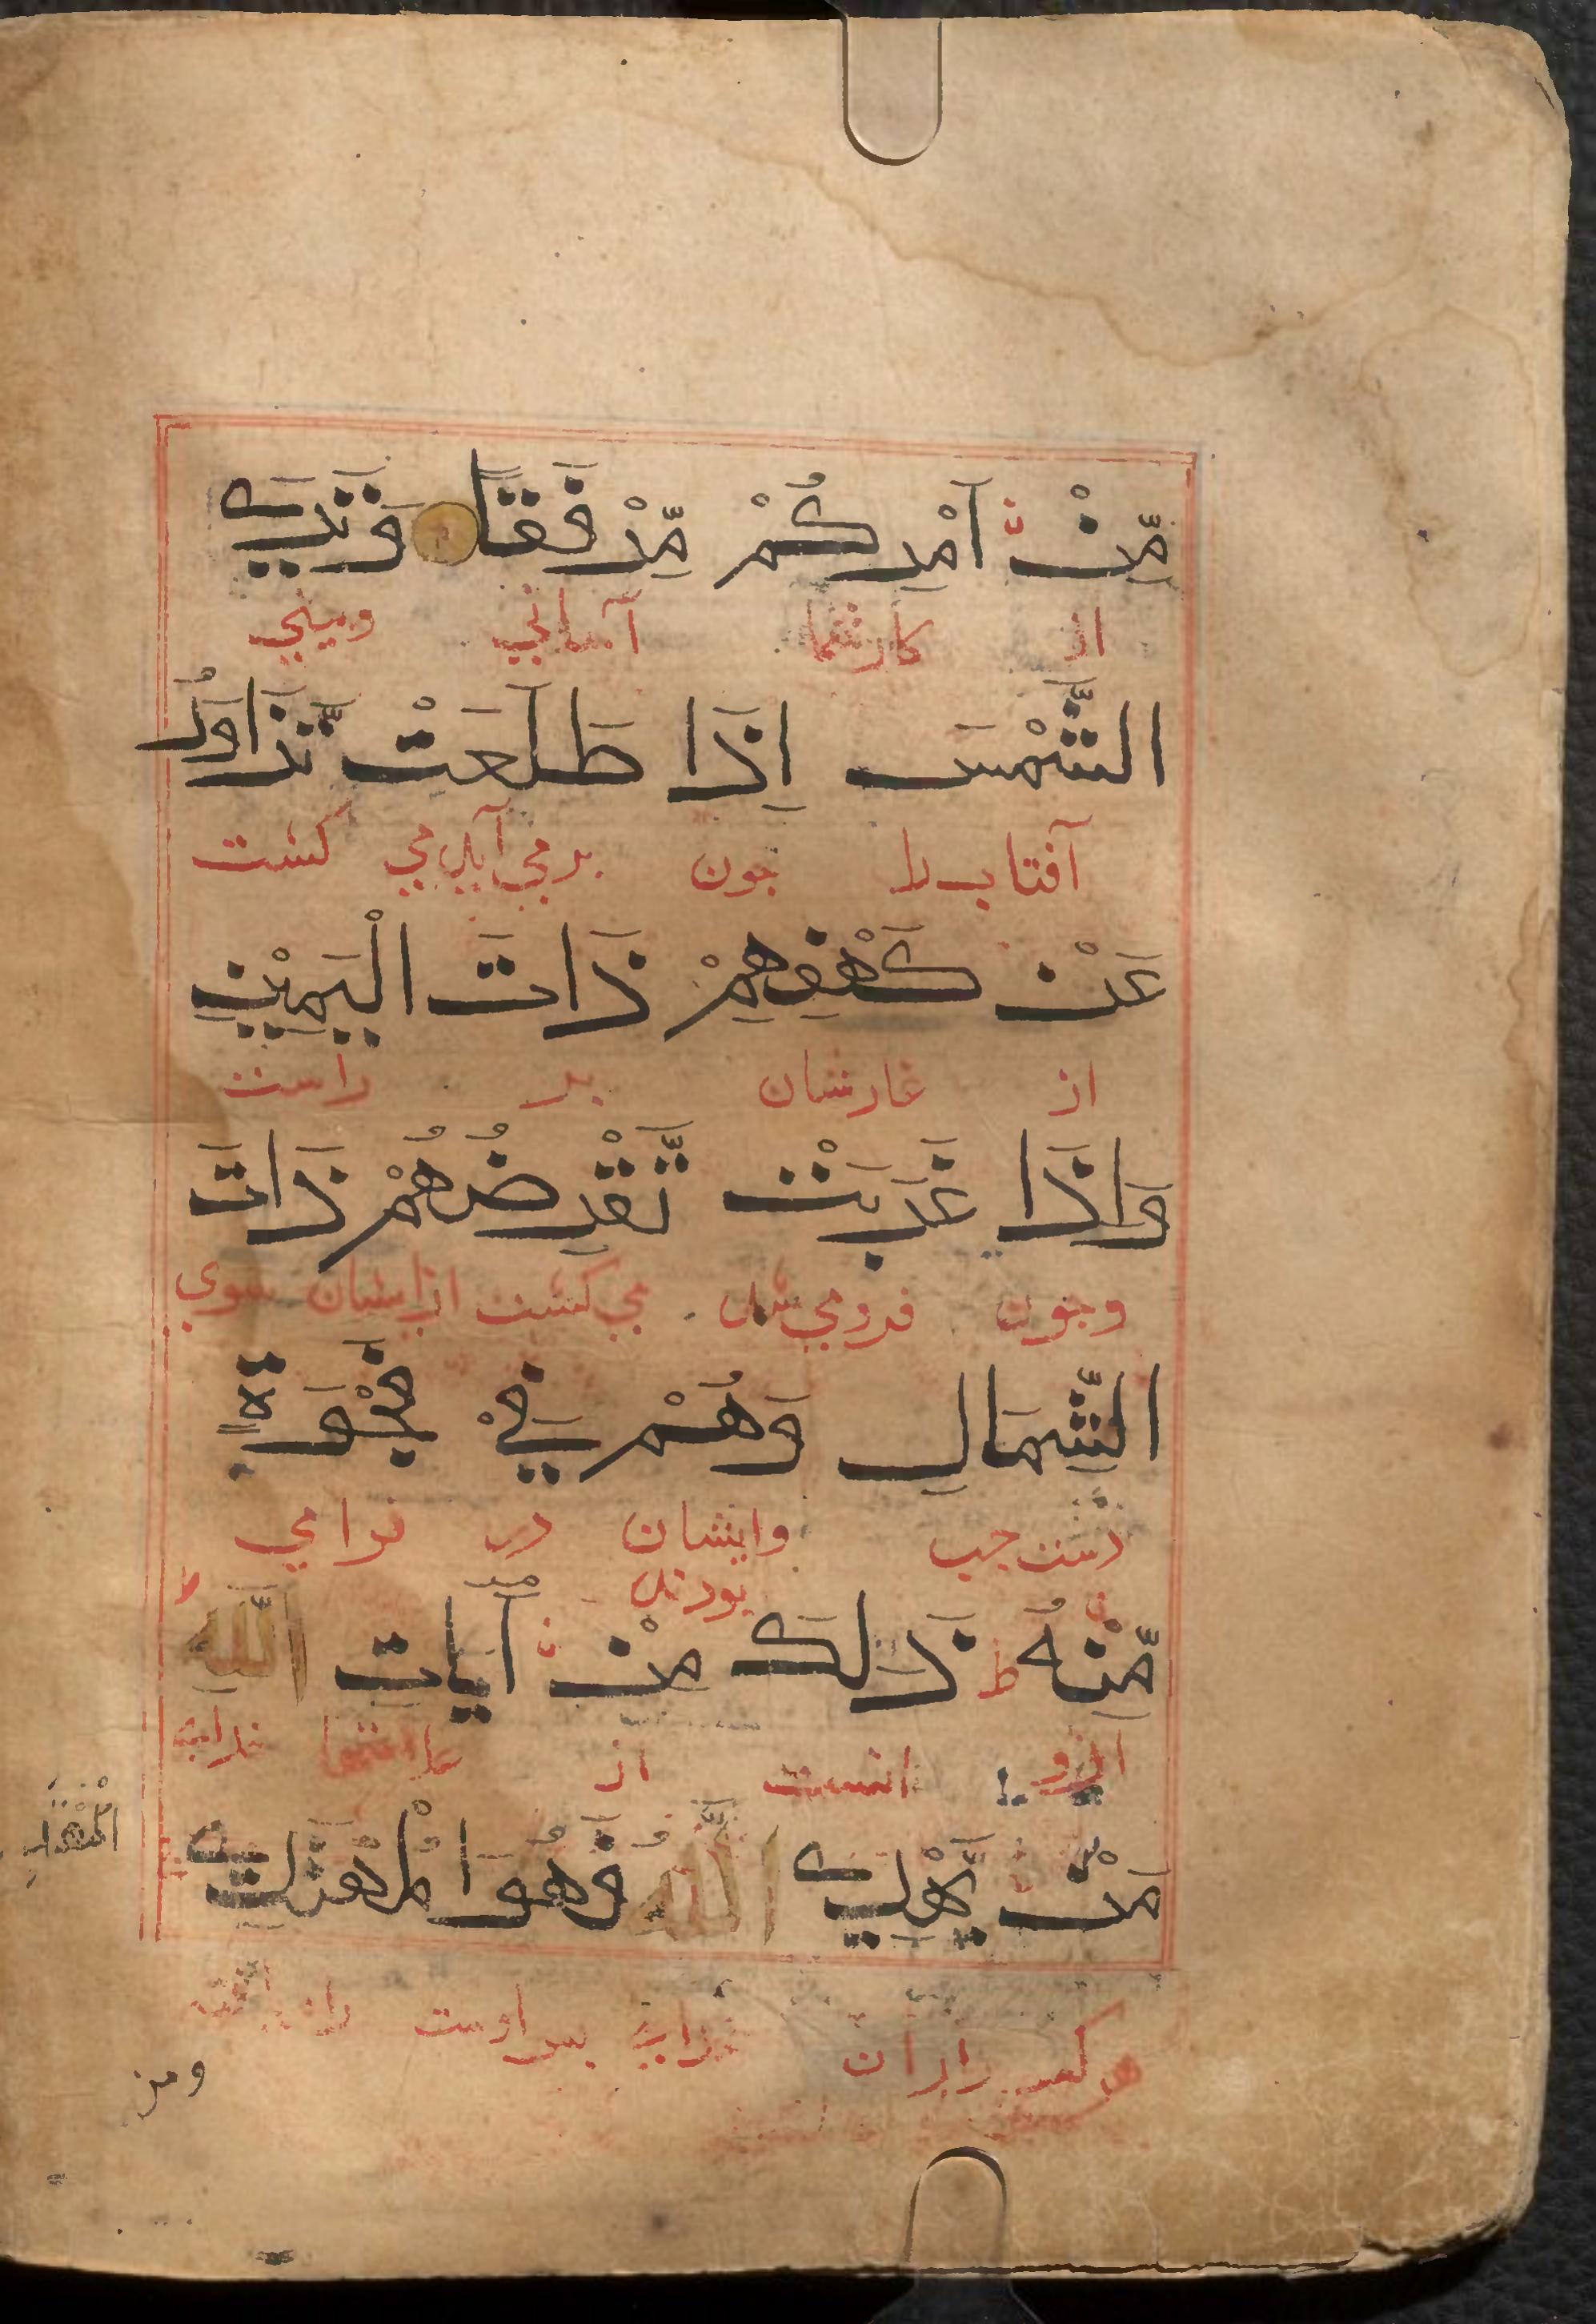 مِّنْ اَمْرِكُمْ مِّرْفَقًا وَتَرَى
از کارشما آسانی وبینی
الشَّمْسَ اِذَا طَلَعَتْ تَّزَاوَرُ
آفتاب را جون برمی آید می کشت
عَنْ كَهْفِهِمْ ذَاتَ الْيَمِيْنِ
از غارشان بر راست
وَاِذَا غَرَبَتْ تَّقْرِضُهُمْ ذَاتَ
وجون فرومی شد می کشت ازایشان سوی
الشِّمَالِ وَهُمْ فِيْ فَجْوَةٍ
دست جب وایشان در فراخی
بودند
مِّنْهُ ط ذَالِكَ مِنْ آيَاتِ اللّٰهِ ط
ازو انست از
مَنْ يَّهْدِي اللّٰهُ فَهُوَالْمُهْتَدِي
هرکه را
ومن